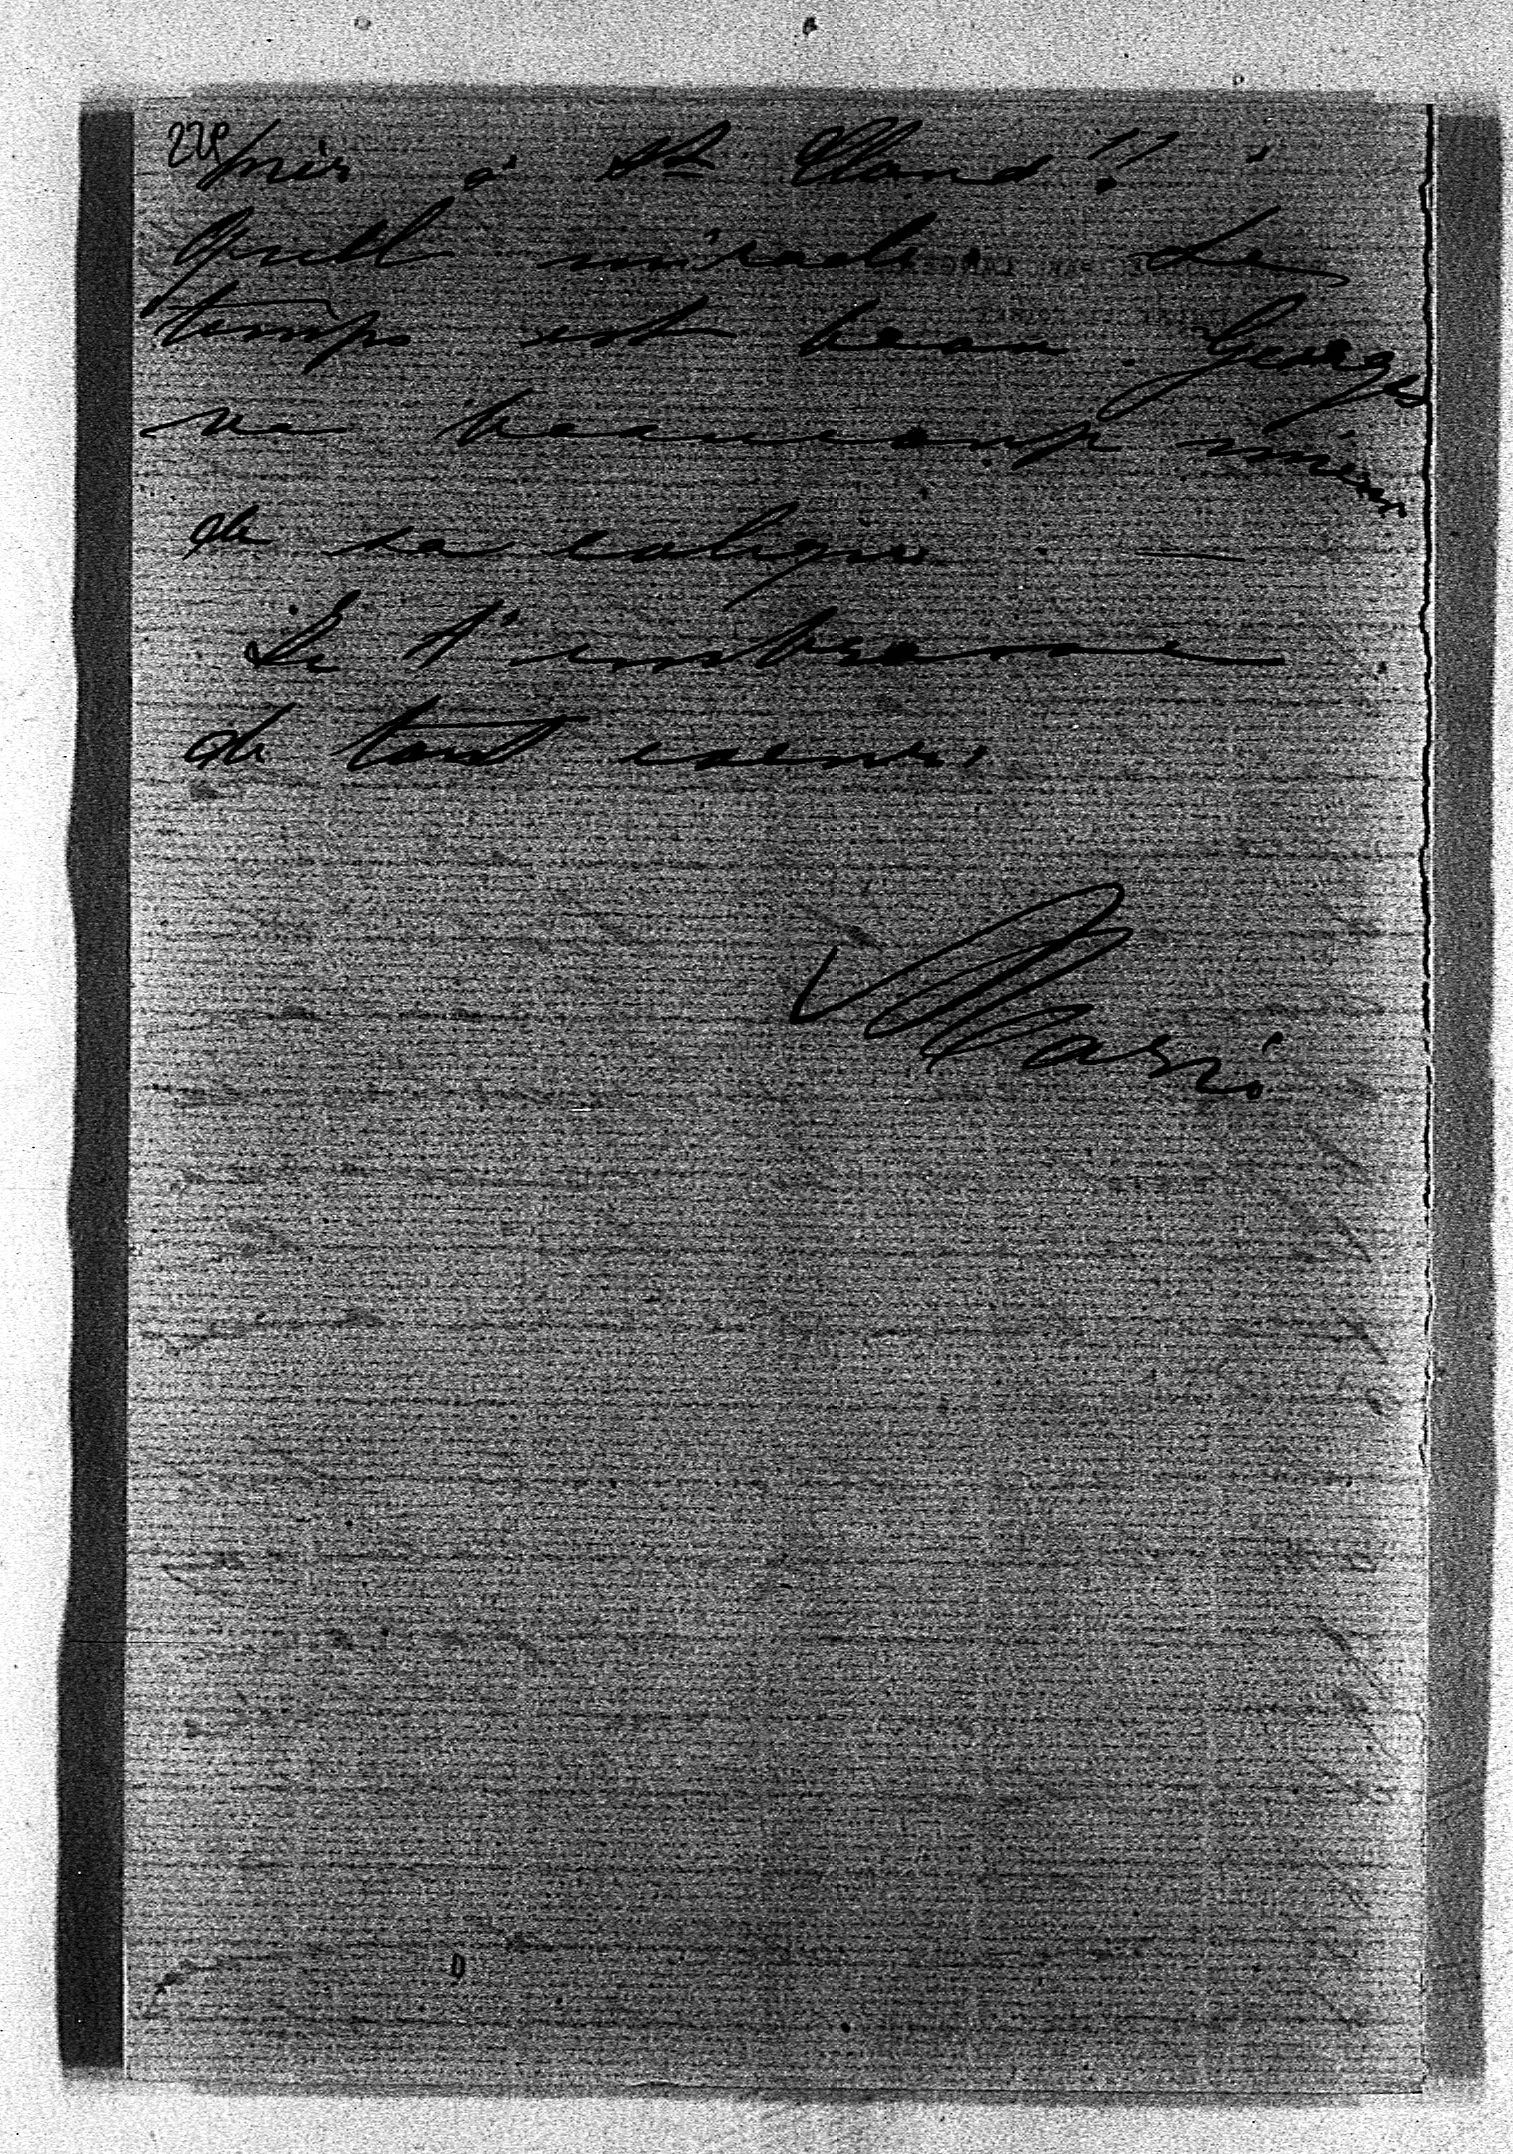 228
pris à St Cloud !!
quel miracle. Le
temps est beau. Georges
va beaucoup mieux
de sa colique. —
Je t'embrasse
de tout coeur.
Mary